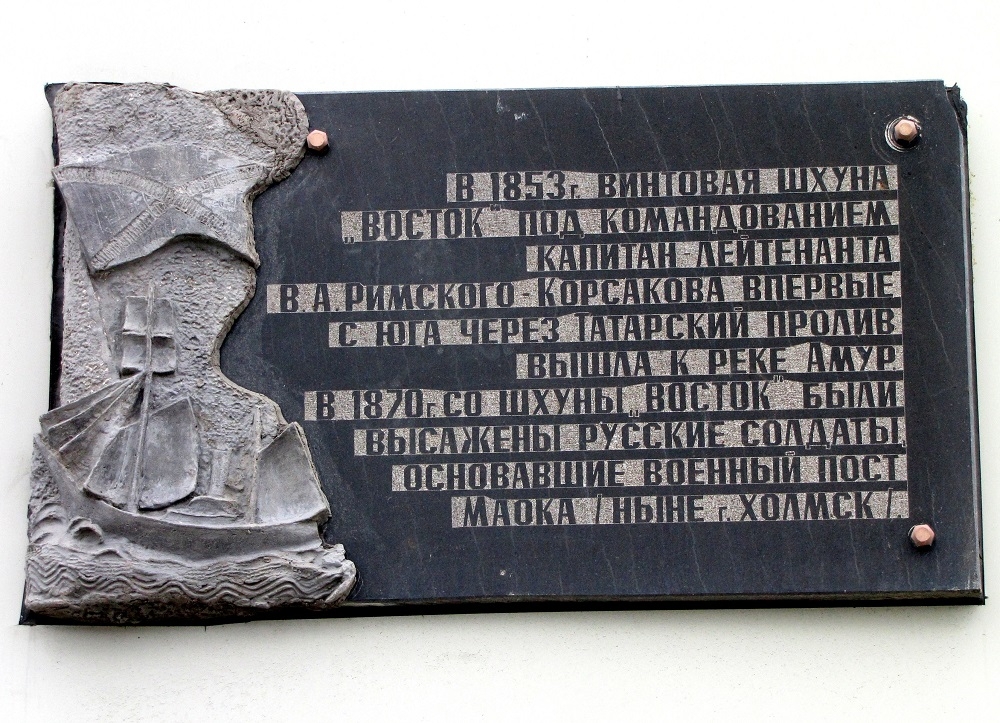 В 1853г. ВИНТОВАЯ ШХУНА
„ВОСТОК" ПОД КОМАНДОВАНИЕМ
КАПИТАН-ЛЕЙТЕНАНТА
В.А.РИМСКОГО-КОРСАКОВА ВПЕРВЫЕ
С ЮГА ЧЕРЕЗ ТАТАРСКИЙ ПРОЛИВ
ВЫШЛА К РЕКЕ АМУР.
В 1870г. СО ШХУНЫ „ВОСТОК" БЫЛИ
ВЫСАЖЕНЫ РУССКИЕ СОЛДАТЫ,
ОСНОВАВШИЕ ВОЕННЫЙ ПОСТ
МАОКА /НЫНЕ г. ХОЛМСК/.